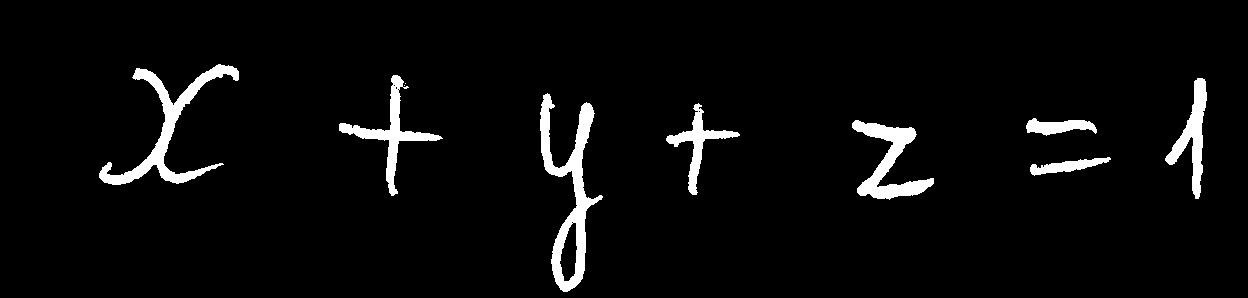 x + y + z = 1